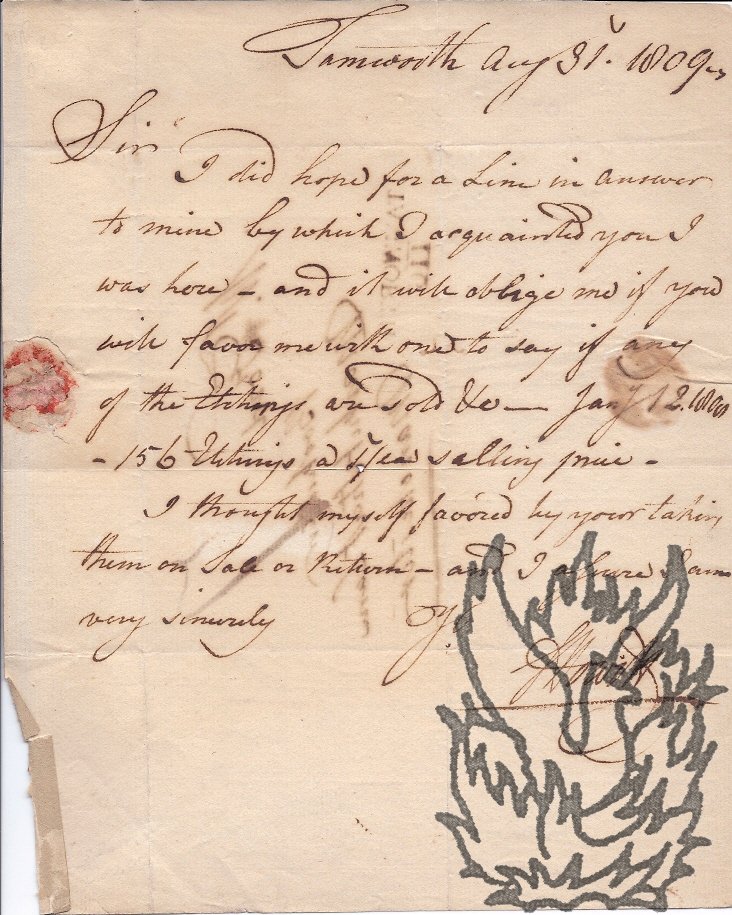 Tamworth Aug 31. 1809
Sir
I did hope for a Line in answer
to mine by which I acquainted you I
was here - and it will oblige me if you
will favor me with one to say if any
of the Etchings are Sold &c — Jany 12. 1808
- 156 Etchings a 4/ea selling price -
I thought myself favored by your taking
them on Sale or Return - and I assure I am
very sincerely Yrs
S Howitt